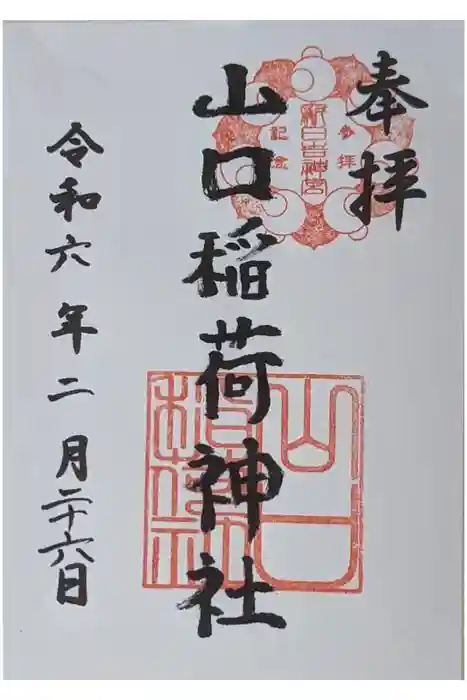 奉拝
参拝
新日吉神宮
記念
山口稲荷神社
山口
稲荷社
令和六年二月二十六日